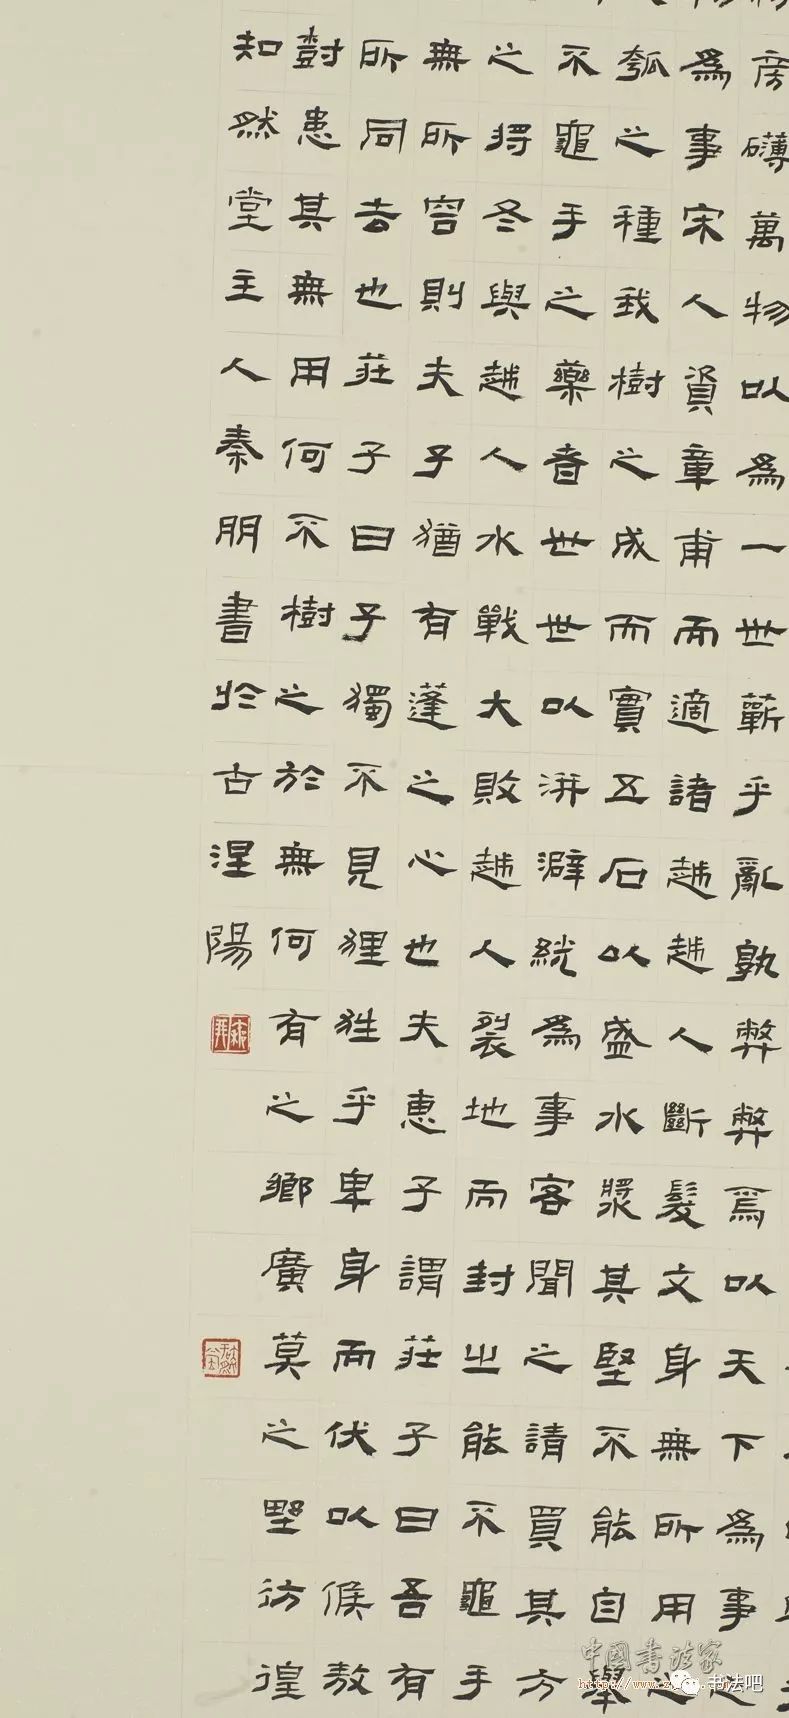 旁礴萬物以為一世蘄乎亂孰弊弊焉以天下為事之
為事宋人資章甫而適諸越越人斷髮文身無所用之
瓠之種我樹之成而實五石以盛水漿其堅不能自舉
不龜手之藥者世世以洴澼絖為事客聞之請買其方
之將冬與越人水戰大敗越人裂地而封之能不龜手
無所容則夫子猶有蓬之心也夫惠子謂莊子曰吾有
所同去也莊子曰子獨不見狸狌乎卑身而伏以候敖
對患其無用何不樹之於無何有之鄉廣莫之野彷徨
知然堂主人秦朋書於古涅陽
中国書法家
书法吧